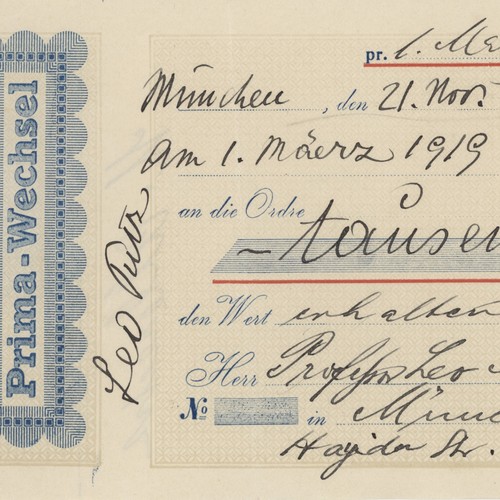 Prima-Wechsel
Leo Putz
pr. 1. Me
München, den 21. Nov.
Am 1. Märrz 1919
an die Ordre
~ tausen
den Wert erhalten
Herr Professor Leo
№ in Münc
Str.